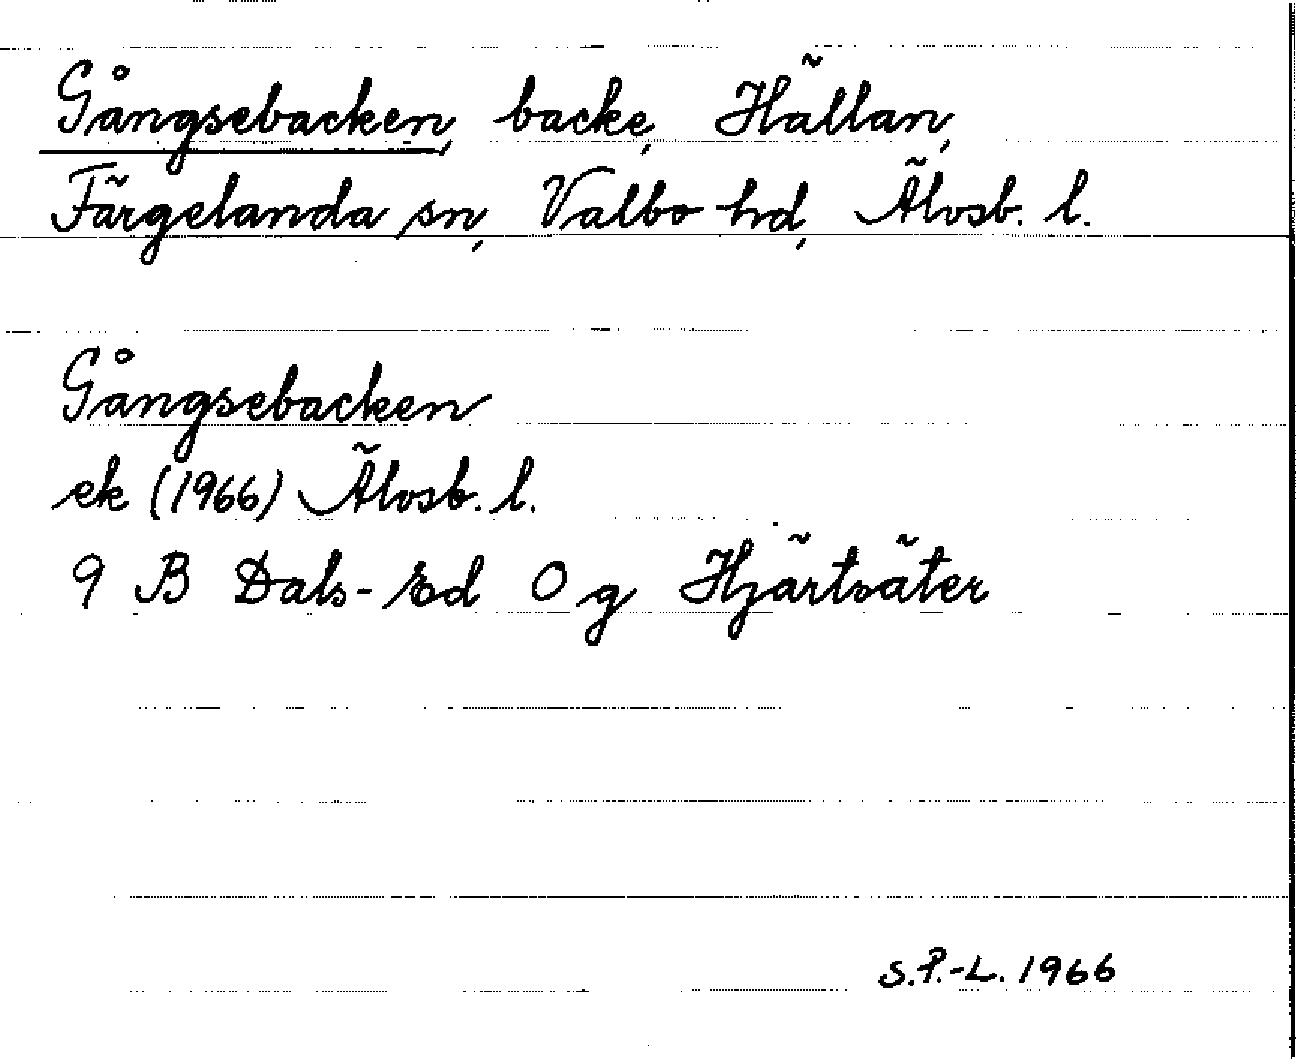 Gångsebacken, backe, Hällan,
Färgelanda sn, Valbo hd, Älvsb. l.
Gångsebacken
ek (1966) Älvsb. l.
9 B Dals-Ed 0 g Hjärtsäter
S.P.-L. 1966